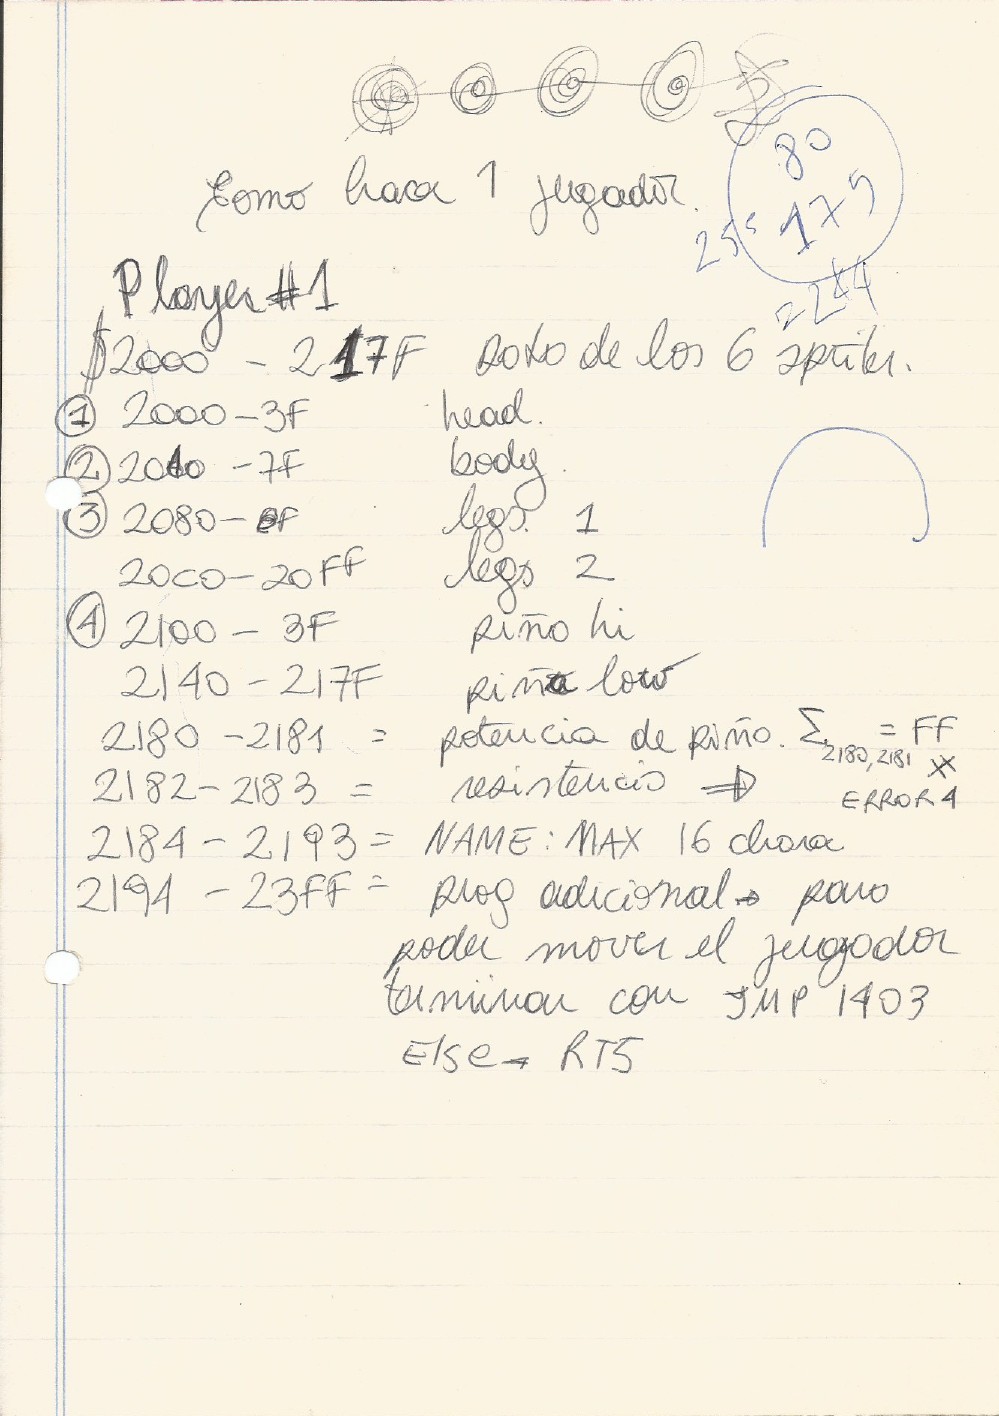 80
175
255
2244
Como hacer 1 jugador.
Player #1
$2000 - 217F dato de los 6 sprites.
1 2000-3F head.
2 2040-7F body.
3 2080-BF legs. 1
20C0-20FF legs 2
4 2100-3F piño hi
2140-217F piña low
2180-2181 = potencia de piño. Σ 2180,2181 = FF
2182-2183 = resistencia ⇒ ERROR 4
2184-2193 = NAME: MAX 16 chars
2194-23FF = prog adicional → para
poder mover el jugador
terminar con JMP 1403
Else → RTS